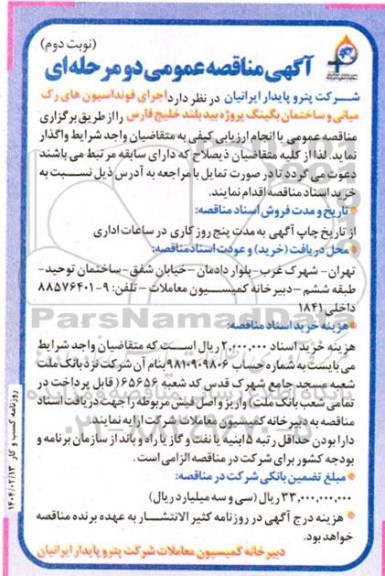 (نوبت دوم)
آگهی مناقصه عمومی دو مرحله‌ای
شرکت پترو پایدار ایرانیان در نظر دارد اجرای فونداسیون های رک
میانی و ساختمان بگینگ پروژه بید بلند خلیج فارس را از طریق برگزاری
مناقصه عمومی با انجام ارزیابی کیفی به متقاضیان واجد شرایط واگذار
نماید. لذا از کلیه متقاضیان ذیصلاح که دارای سابقه مرتبط می باشند
دعوت می گردد تا در صورت تمایل با مراجعه به آدرس ذیل نسبت به
خرید اسناد مناقصه اقدام نمایند.
* تاریخ و مدت فروش اسناد مناقصه:
از تاریخ چاپ آگهی به مدت پنج روز کاری در ساعات اداری
* محل دریافت (خرید) و عودت اسناد مناقصه:
تهران - شهرک غرب - بلوار دادمان - خیابان شفق - ساختمان توحید -
طبقه ششم - دبیرخانه کمیسیون معاملات - تلفن: ۹-۸۸۵۷۶۴۰۱
داخلی ۱۸۴۱
* هزینه خرید اسناد مناقصه:
هزینه خرید اسناد ۲,۰۰۰,۰۰۰ ریال است که متقاضیان واجد شرایط
می بایست به شماره حساب ۹۸۱۰۹۰۹۸۰۶ بنام آن شرکت نزد بانک ملت
شعبه مسجد جامع شهرک قدس کد شعبه ۶۵۶۵۶ (قابل پرداخت در
تمامی شعب بانک ملت) واریز و اصل فیش مربوطه را جهت دریافت اسناد
مناقصه به دبیرخانه کمیسیون معاملات شرکت ارایه نمایند.
دارا بودن حداقل رتبه ۵ ابنیه یا نفت و گاز یا راه و باند از سازمان برنامه و
بودجه کشور برای شرکت در مناقصه الزامی است.
* مبلغ تضمین بانکی شرکت در مناقصه:
۳۳,۰۰۰,۰۰۰,۰۰۰ ریال (سی و سه میلیارد ریال)
* هزینه درج آگهی در روزنامه کثیر الانتشار به عهده برنده مناقصه
خواهد بود.
دبیرخانه کمیسیون معاملات شرکت پترو پایدار ایرانیان
روزنامه کسب و کار ۱۴۰۴/۰۲/۱۳
ParsNamadData